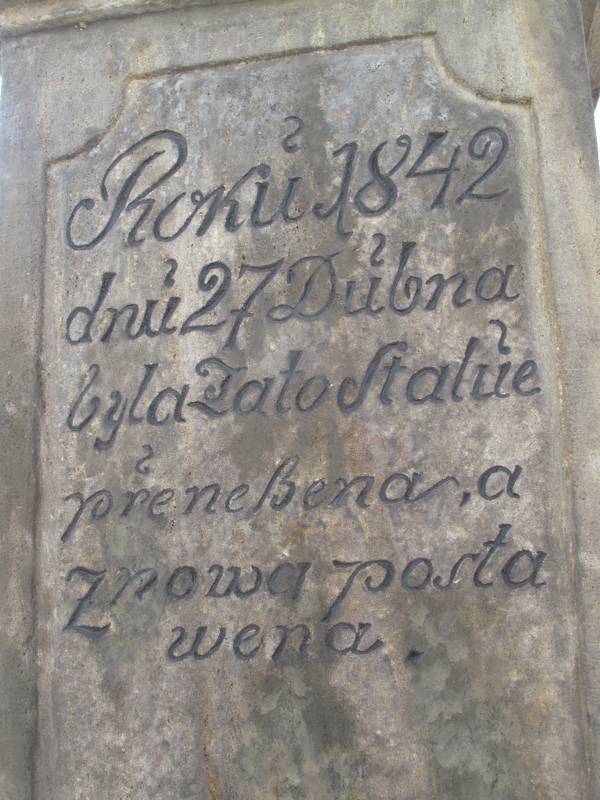 Roků 1842
dnů 27 Důbna
byla Tato Statůe
přeneßena, a
Znowa posta
wena.